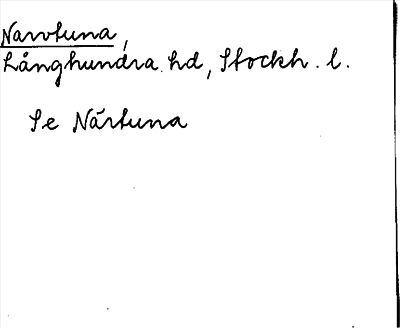 Narvtuna,
Långhundra hd, Stockh. l.
Se Närtuna